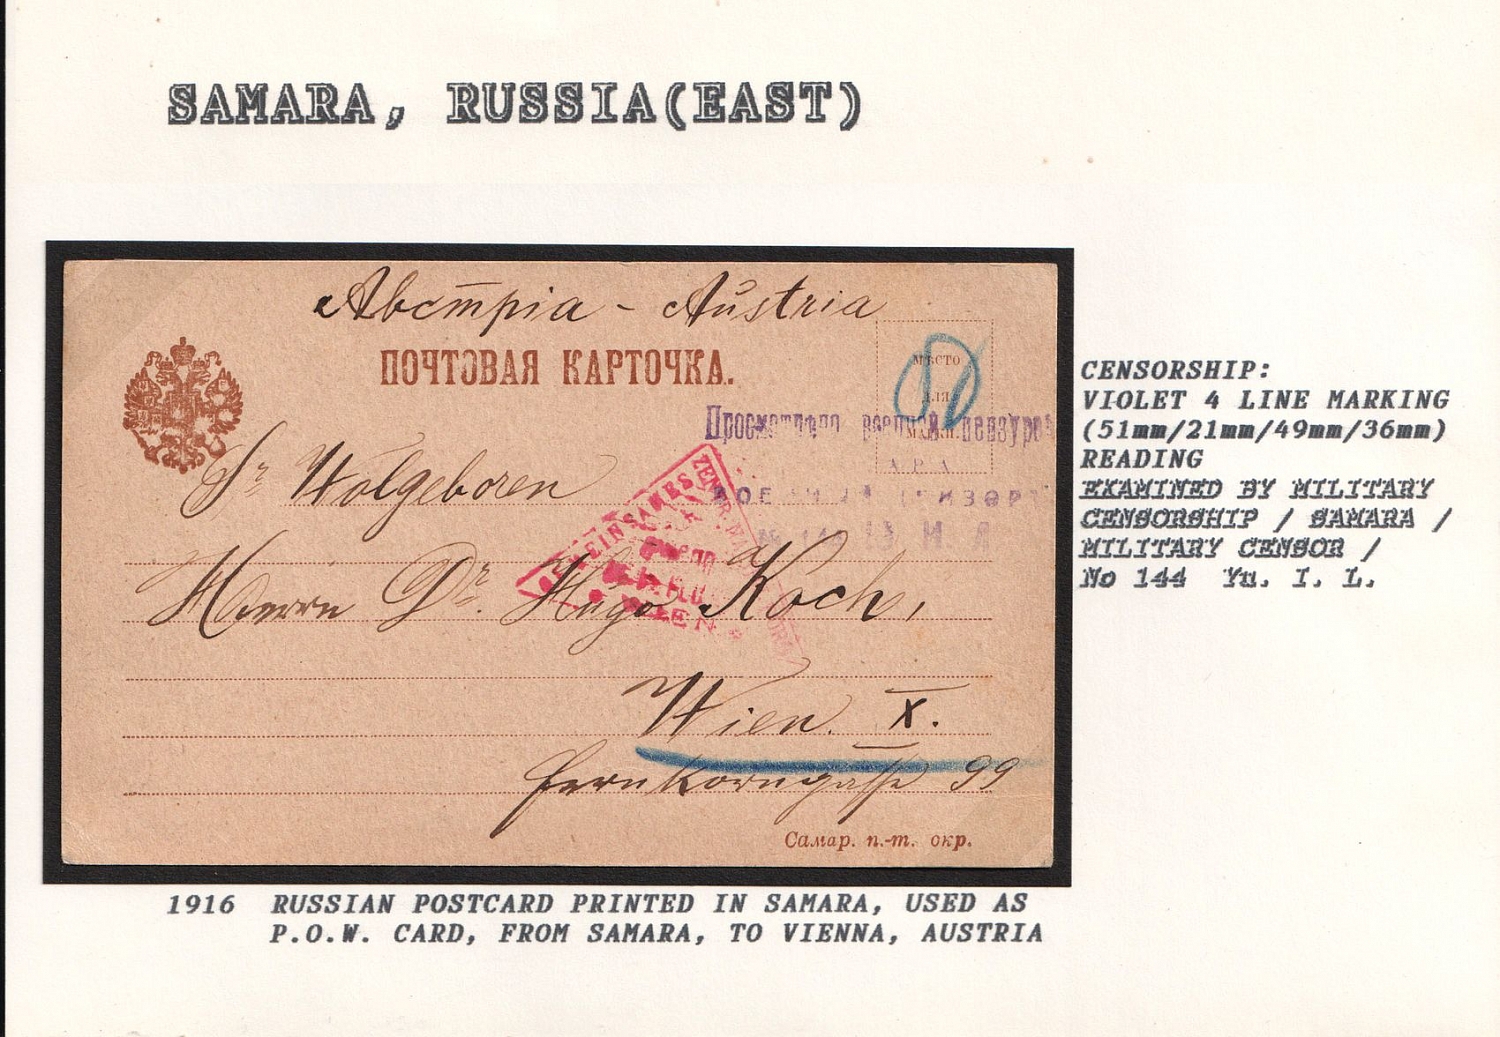 SAMARA, RUSSIA(EAST)
Австрія - Austria
ПОЧТОВАЯ КАРТОЧКА.
МѢСТО
ДЛЯ
МАРКИ.
Просмотрено военной цензурой
САМАРА
ВОЕННЫЙ ЦЕНЗОРЪ
№ 144
Sr Wolgeboren
GEMEINSAMES ZENTR. NACHW
WIEN
Herrn Dr. Hugo Koch,
Wien X.
Fernkorngasse 99
Самар. п.-т. окр.
CENSORSHIP:
VIOLET 4 LINE MARKING
(51mm/21mm/49mm/36mm)
READING
EXAMINED BY MILITARY
CENSORSHIP / SAMARA /
MILITARY CENSOR /
No 144 Yu. I. L.
1916 RUSSIAN POSTCARD PRINTED IN SAMARA, USED AS
P.O.W. CARD, FROM SAMARA, TO VIENNA, AUSTRIA